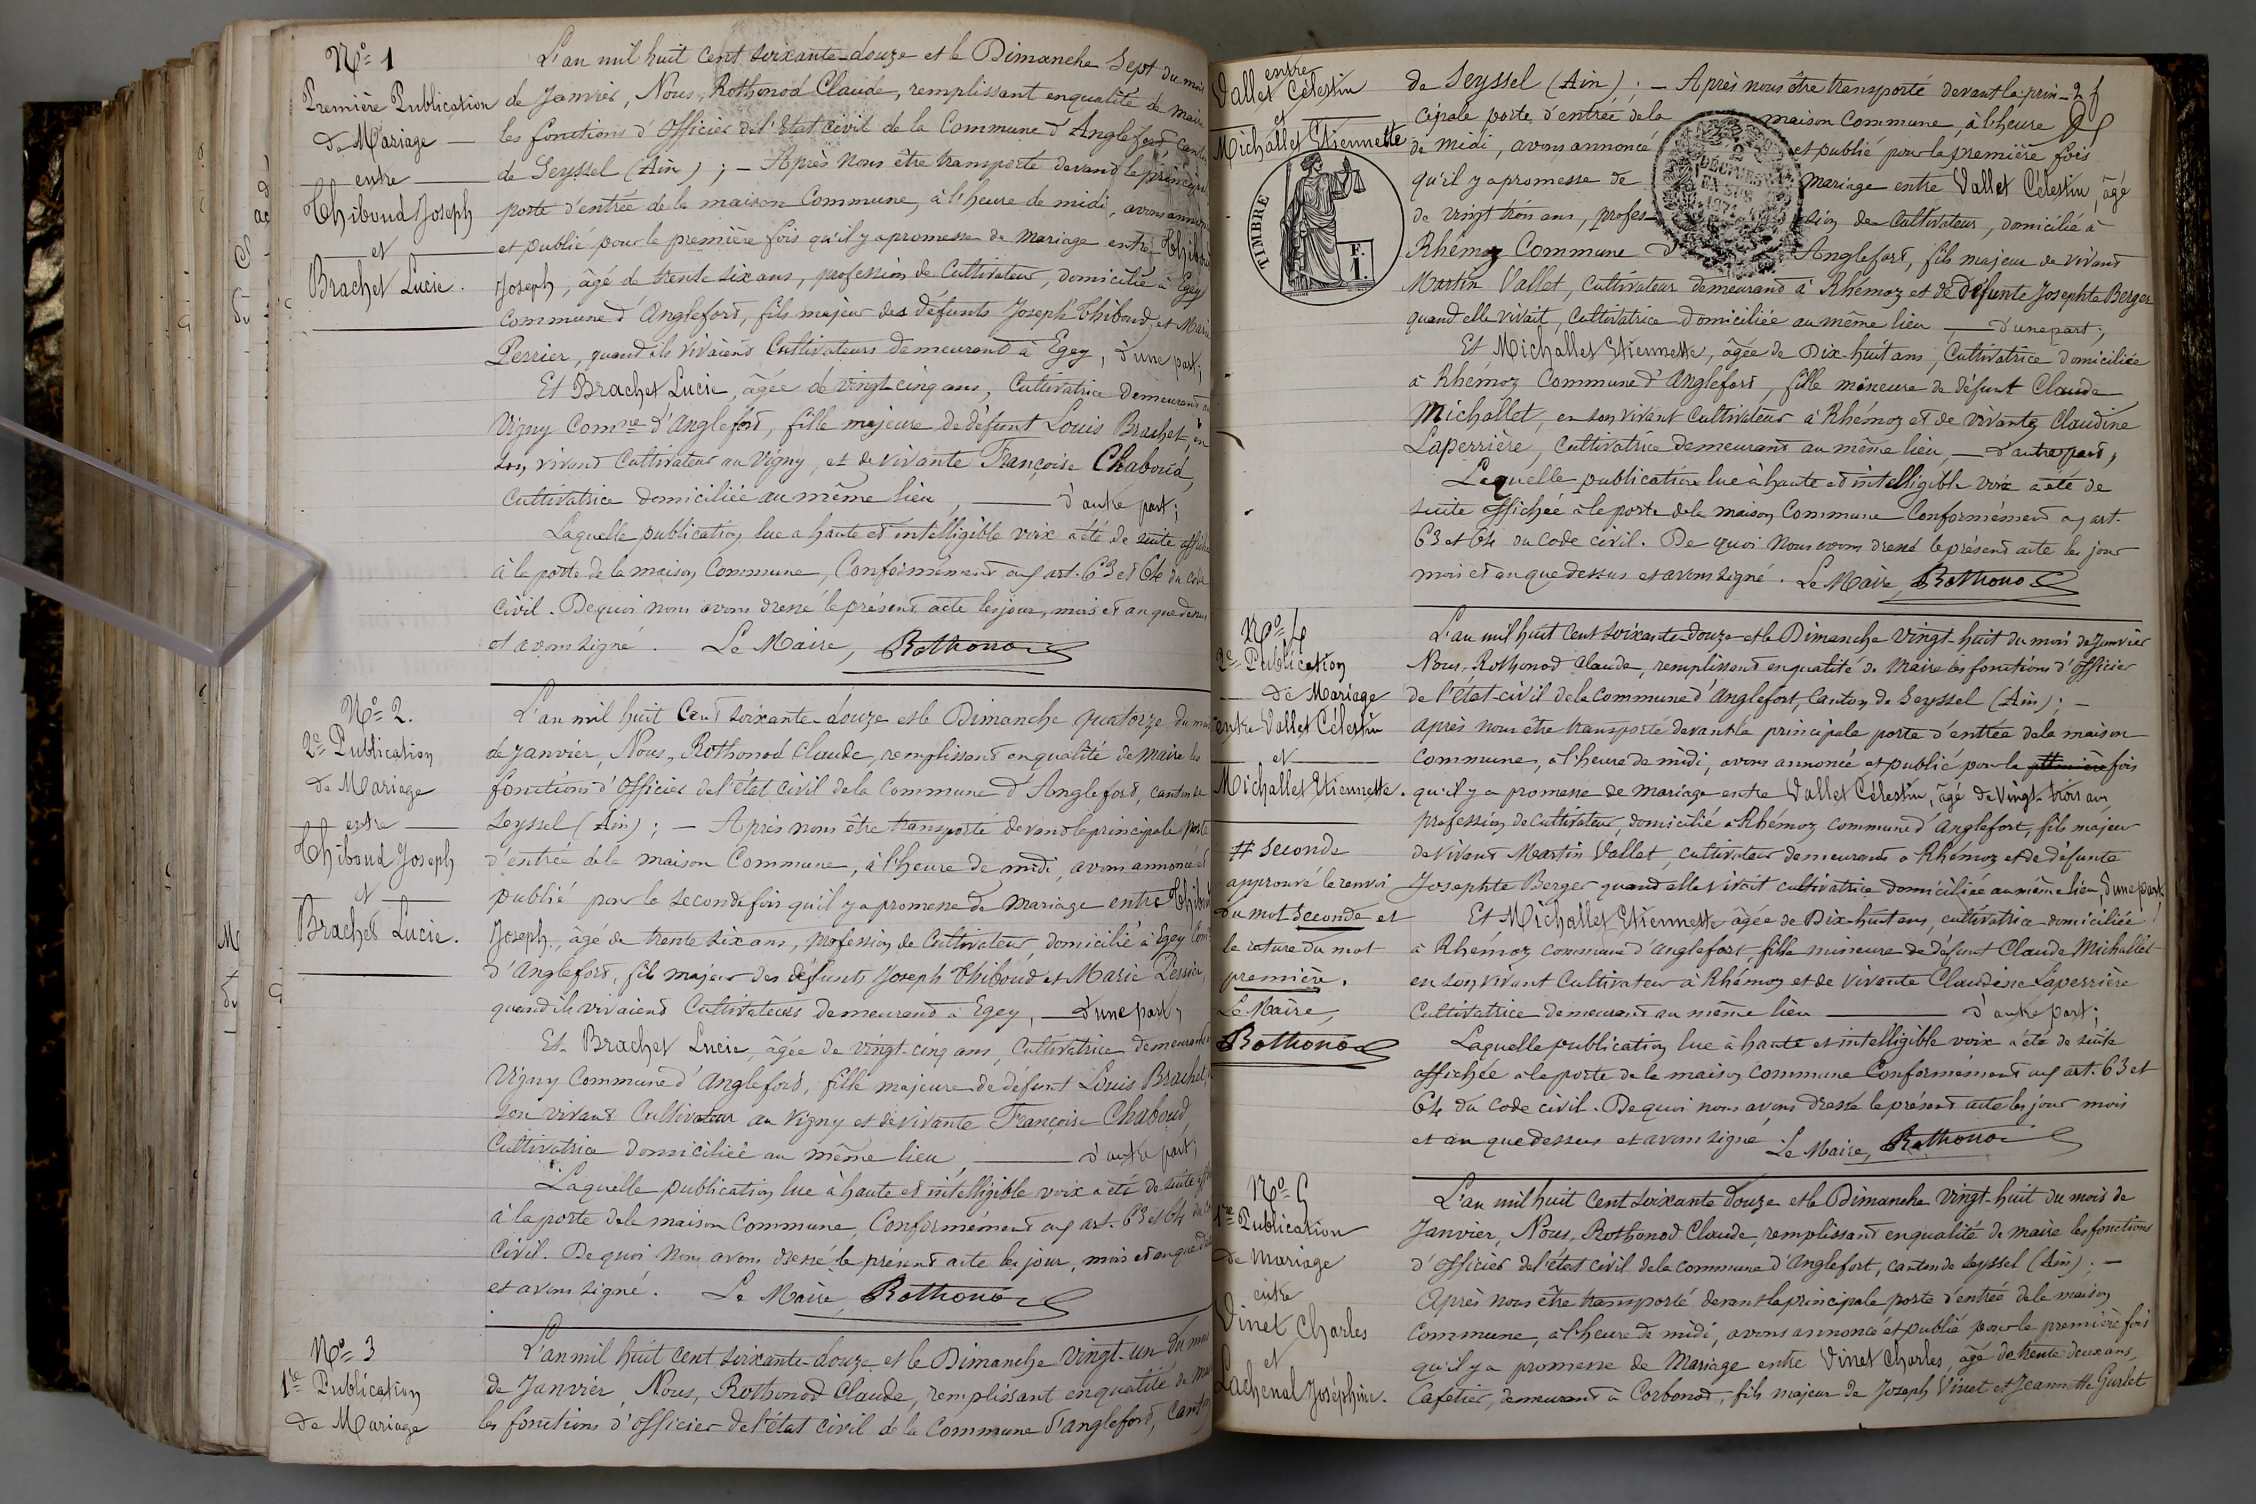 Nº 1
Première Publication
de Mariage
entre
Thiboud Joseph
et
Brachet Lucie.
L'an mil huit cent soixante-douze et le Dimanche Sept du mois
de Janvier, Nous, Rothonod Claude, remplissant en qualité de maire
les fonctions d'Officier de l'Etat civil de la Commune d'Anglefort, canton
de Seyssel (Ain) ; — Après nous être transporté devant la principale
porte d'entrée de la maison Commune, à l'heure de midi, avons annoncé
et publié pour la première fois qu'il y a promesse de mariage entre Thiboud
Joseph, âgé de trente six ans, profession de Cultivateur, domicilié à Egey
Commune d'Anglefort, fils majeur des défunts Joseph Thiboud et Marie
Perrier, quand ils vivaient Cultivateurs demeurant à Egey, d'une part;
Et Brachet Lucie, âgée de vingt-cinq ans, Cultivatrice demeurant au
Vigny Comne d'Anglefort, fille majeure de défunt Louis Brachet, en
son vivant Cultivateur au Vigny, et de vivante Françoise Chaboud,
Cultivatrice domiciliée au même lieu, — d'autre part;
Laquelle publication lue à haute et intelligible voix a été de suite affichée
à la porte de la maison Commune, Conformément aux art. 63 et 64 du code
civil. De quoi nous avons dressé le présent acte les jour, mois et an que dessus
et avons signé. Le Maire, Rothonod
Nº 2.
2e Publication
de Mariage
entre
Thiboud Joseph
et
Brachet Lucie.
L'an mil huit cent soixante-douze et le Dimanche quatorze du mois
de Janvier, Nous, Rothonod Claude, remplissant en qualité de maire les
fonctions d'Officier de l'état civil de la Commune d'Anglefort, canton de
Seyssel (Ain) ; — Après nous être transporté devant la principale porte
d'entrée de la maison Commune, à l'heure de midi, avons annoncé et
publié pour la seconde fois qu'il y a promesse de mariage entre Thiboud
Joseph, âgé de trente six ans, profession de Cultivateur, domicilié à Egey Comne
d'Anglefort, fils majeur des défunts Joseph Thiboud et Marie Perrier,
quand ils vivaient Cultivateurs demeurant à Egey, — d'une part,
Et Brachet Lucie, âgée de vingt-cinq ans, Cultivatrice demeurant au
Vigny Commune d'Anglefort, fille majeure de défunt Louis Brachet, en
son vivant Cultivateur au Vigny et de vivante Françoise Chaboud
Cultivatrice domiciliée au même lieu, — d'autre part;
Laquelle publication lue à haute et intelligible voix a été de suite
à la porte de la maison Commune, Conformément aux art. 63 et 64 du
civil. De quoi nous avons dressé le présent acte les jour, mois et an que dessus
et avons signé. Le Maire, Rothonod
Nº 3
1re Publication
de Mariage
L'an mil huit cent soixante-douze et le Dimanche vingt-un du mois
de Janvier, Nous, Rothonod Claude, remplissant en qualité de maire
les fonctions d'officier de l'état civil de la Commune d'Anglefort, canton
entre
Vallet Célestin
et
Michallet Etiennette
TIMBRE
F. I.
2 f
de Seyssel (Ain) ; — Après nous être transporté devant la prin-
cipale porte d'entrée de la maison Commune, à l'heure
de midi, avons annoncé et publié pour la première fois
qu'il y a promesse de mariage entre Vallet Célestin, âgé
de vingt trois ans, profession de Cultivateur, domicilié à
Rhémoz Commune d'Anglefort, fils majeur de vivant
Martin Vallet, Cultivateur demeurant à Rhémoz et de défunte Josephte Berger
quand elle vivait, Cultivatrice domiciliée au même lieu — d'une part;
Et Michallet Etiennette, âgée de Dix-huit ans, Cultivatrice domiciliée
à Rhémoz Commune d'Anglefort, fille mineure de défunt Claude
Michallet, en son vivant Cultivateur à Rhémoz et de vivante Claudine
Laperrière, Cultivatrice demeurant au même lieu, — d'autre part,
Laquelle publication lue à haute et intelligible voix a été de
suite affichée à la porte de la maison Commune Conformément aux art.
63 et 64 du code civil. De quoi nous avons dressé le présent acte les jour
mois et an que dessus et avons signé. Le Maire, Rothonod
Nº 4
2e Publication
de Mariage
entre Vallet Célestin
et
Michallet Etiennette.
# seconde
approuvé le renvoi
du mot seconde et
la rature du mot
première.
Le Maire,
Rothonod
L'an mil huit cent soixante-douze et le Dimanche vingt-huit du mois de Janvier
Nous, Rothonod Claude, remplissant en qualité de Maire les fonctions d'officier
de l'état-civil de la commune d'Anglefort, Canton de Seyssel (Ain) ; —
Après nous être transporté devant la principale porte d'entrée de la maison
Commune, à l'heure de midi, avons annoncé et publié pour la première fois
qu'il y a promesse de mariage entre Vallet Célestin, âgé de vingt-trois ans
profession de cultivateur, domicilié à Rhémoz commune d'Anglefort, fils majeur
de vivant Martin Vallet, cultivateur demeurant à Rhémoz et de défunte
Josephte Berger quand elle vivait cultivatrice domiciliée au même lieu, d'une part;
Et Michallet Etiennette âgée de Dix-huit ans, cultivatrice domiciliée
à Rhémoz commune d'Anglefort, fille mineure de défunt Claude Michallet
en son vivant Cultivateur à Rhémoz et de vivante Claudine Laperrière
Cultivatrice demeurant au même lieu — d'autre part;
Laquelle publication lue à haute et intelligible voix a été de suite
affichée à la porte de la maison commune Conformément aux art. 63 et
64 du Code civil. De quoi nous avons dressé le présent acte les jour mois
et an que dessus et avons signé. Le Maire, Rothonod
Nº 5
1re Publication
de Mariage
entre
Vinet Charles
et
Lachenal Joséphine.
L'an mil huit cent soixante douze et le Dimanche vingt-huit du mois de
Janvier, Nous, Rothonod Claude, remplissant en qualité de maire les fonctions
d'Officier de l'état civil de la commune d'Anglefort, canton de Seyssel (Ain) ; —
Après nous être transporté devant la principale porte d'entrée de la maison
Commune, à l'heure de midi, avons annoncé et publié pour la première fois
qu'il y a promesse de Mariage entre Vinet Charles, âgé de trente deux ans,
Cafetier, demeurant à Corbonod, fils majeur de Joseph Vinet et Jeannette Gurlet